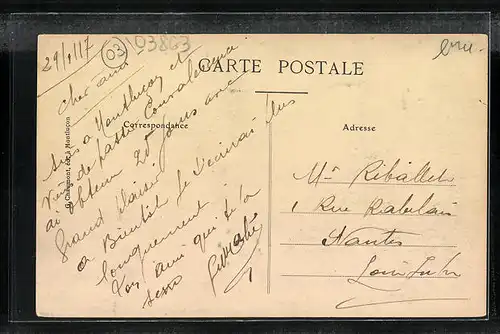 29/1/17
03
03863
CARTE POSTALE
Correspondance
Adresse
cher ami
Suis a Montluçon et
Viens de passer Convalescence
ai obtenu 25 jours avec
Grand Plaisir
a Bientôt Je t'écrirai Plus
longuement
Ton ami qui te la
serre
Mr Riballet
1 Rue Rabelais
Nantes
Loire Infre
édit. à Montluçon